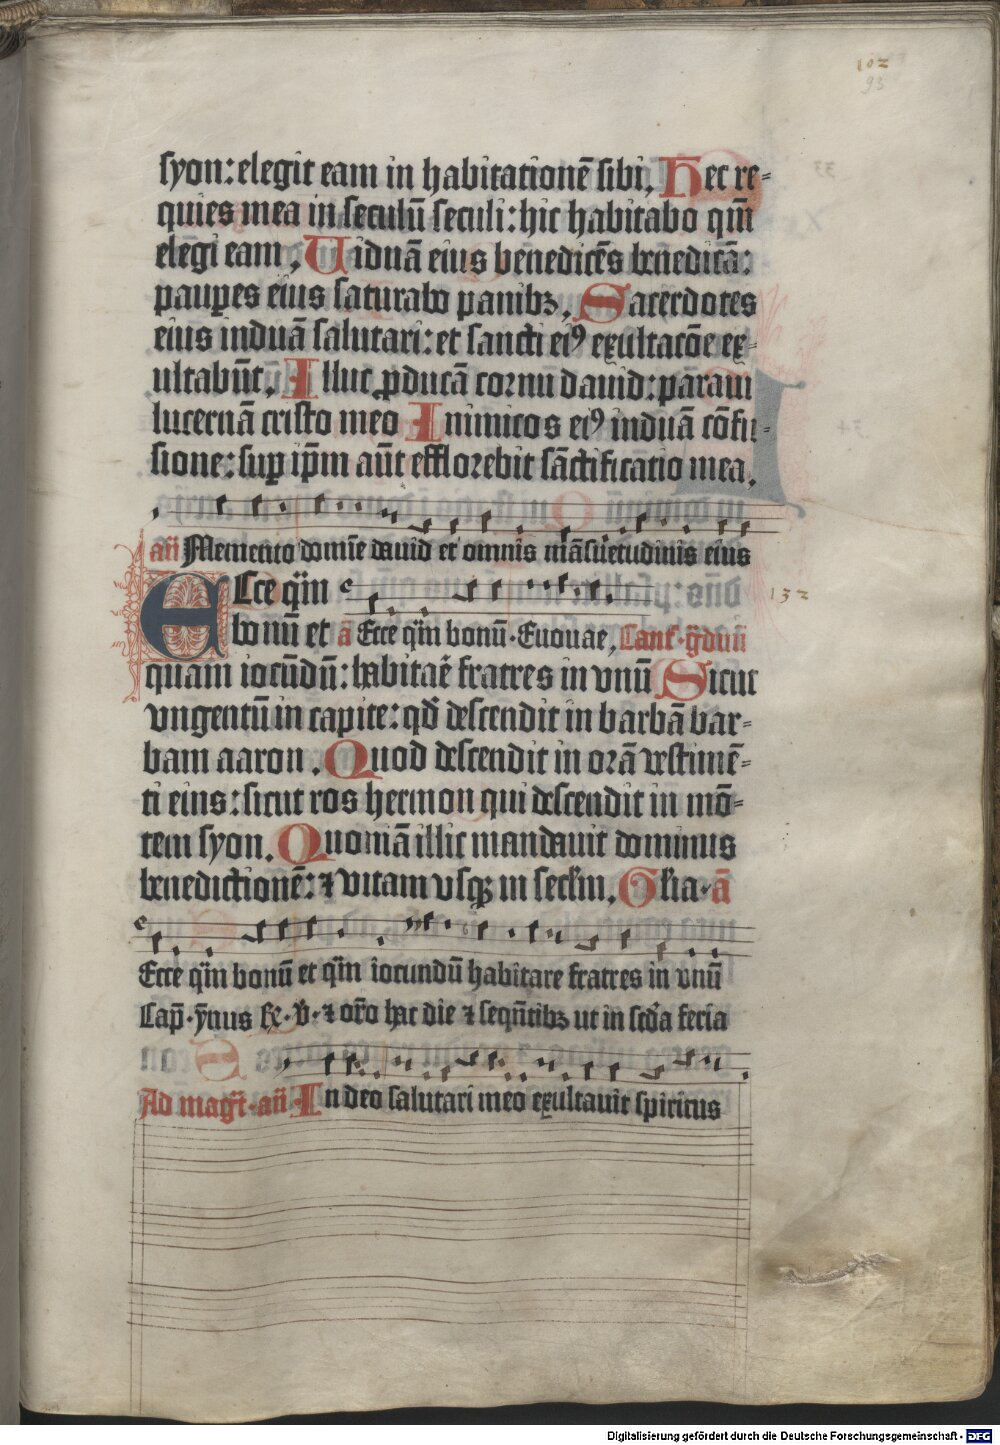 102
93
syon: elegit eam in habitationē sibi. Hec re-
quies mea in seculū seculi: hic habitabo qm̄
elegi eam. Uiduā eius benedicēs benedicā:
paup̲es eius saturabo panibꝫ. Sacerdotes
eius induā salutari: et sancti eiꝰ exultacōe ex-
ultabūt. Illuc ꝓducā cornu dauid: paraui
lucernā cristo meo Inimicos eiꝰ induā cōfu-
sione: suꝑ ip̄m aūt efflorebit sāctificatio mea.
an̄ Memento domīe dauid et omnis māsuetudinis eius
Ecce qm̄
132
bonū et ā Ecce qm̄ bonū. Euouae, Cant. gͣduū
quam iocūdū: habitaē fratres in vnū Sicut
vngentū in capite: qd̄ descendit in barbā bar-
bam aaron. Quod descendit in orā vestimē-
ti eius: sicut ros hermon qui descendit in mō-
tem syon. Quoniā illic mandauit dominus
benedictionē: ⁊ vitam vsqꝫ in seclm̄. Glia. ā
Ecce qm̄ bonū et qm̄ iocundū habitare fratres in vnū
Cap̄. ym̄us R̄. v̄. ⁊ oro hac die ⁊ seqn̄tibꝫ ut in scd̄a feria
Ad magt̄. an̄ In deo salutari meo exultauit spiritus
Digitalisierung gefördert durch die Deutsche Forschungsgemeinschaft - DFG